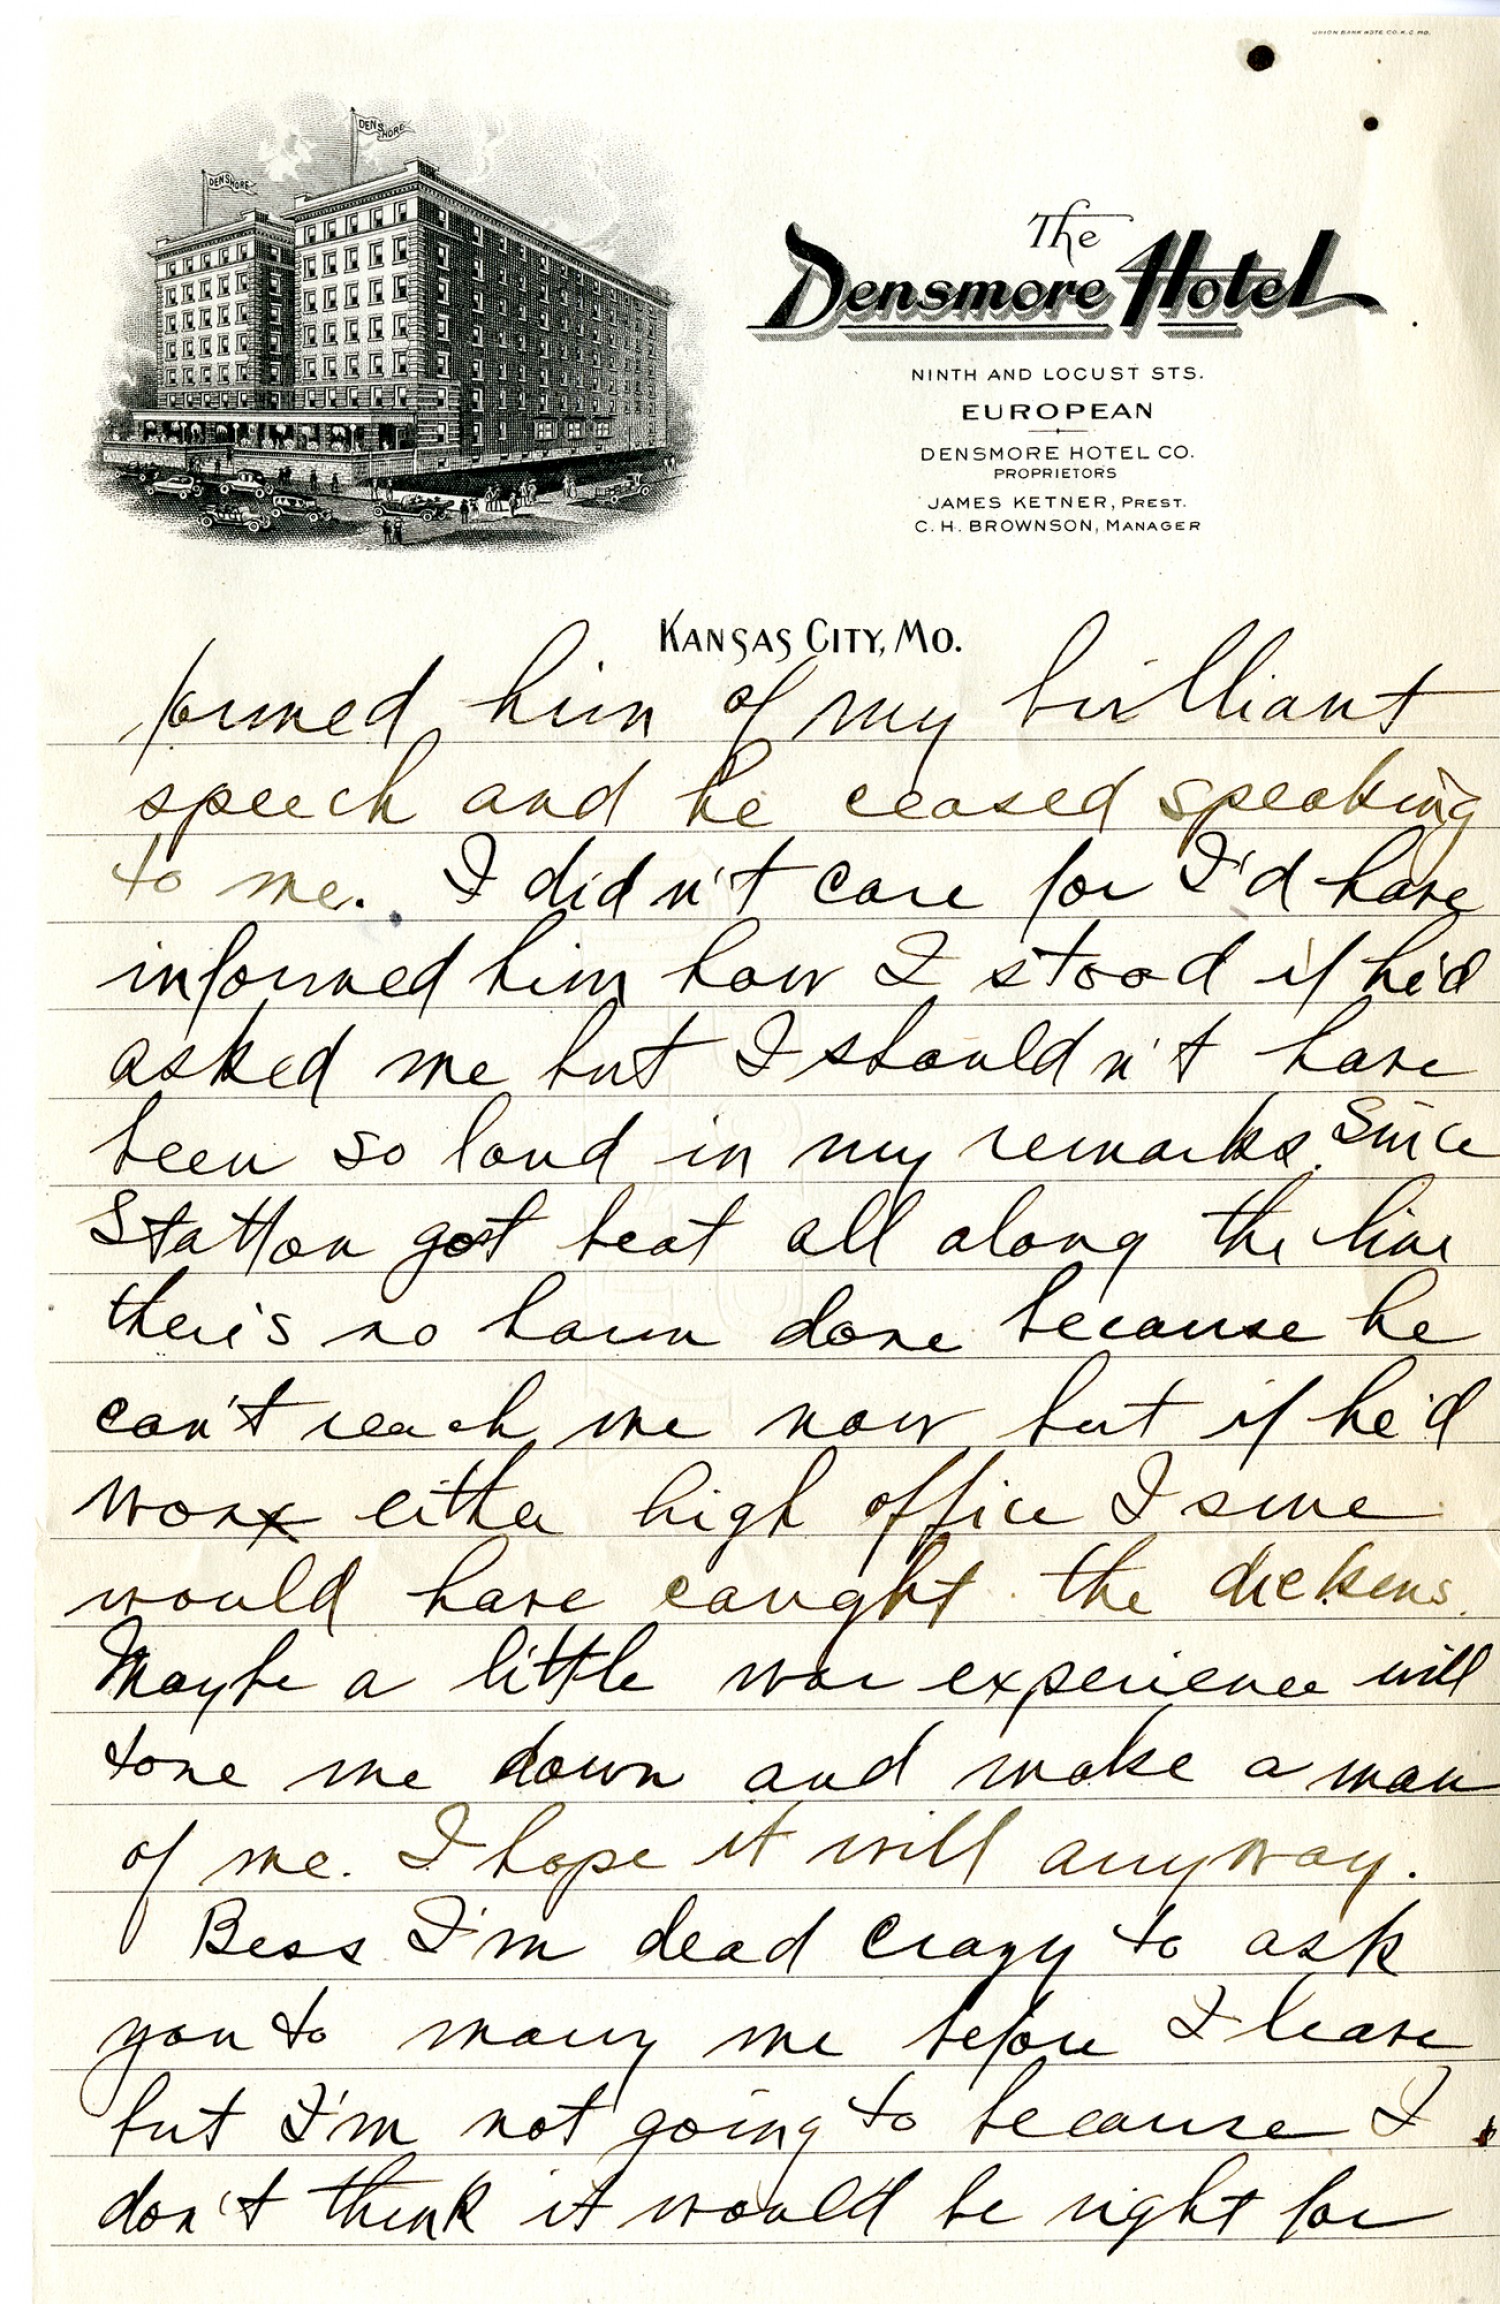 UNION BANK NOTE CO. K.C. MO.
DENSMORE
DENSMORE
The
Densmore Hotel
NINTH AND LOCUST STS.
EUROPEAN
DENSMORE HOTEL CO.
PROPRIETORS
JAMES KETNER, PREST.
C. H. BROWNSON, MANAGER
KANSAS CITY, MO.
formed him of my brilliant
speech and he ceased speaking
to me. I didn't care for I'd have
informed him how I stood if he'd
asked me but I shouldn't have
been so loud in my remarks. Since
Statton got beat all along the line
there's no harm done because he
can't reach me now but if he'd
won either high office I sure
would have caught the dickens.
Maybe a little war experience will
tone me down and make a man
of me. I hope it will anyway.
Bess I'm dead crazy to ask
you to marry me before I leave
but I'm not going to because I
don't think it would be right for